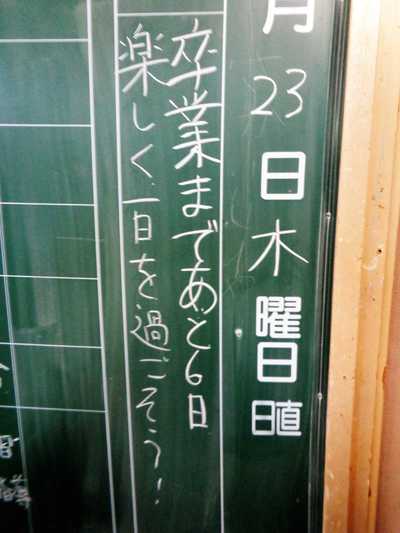 月23日木曜日
日直
卒業まであと6日
楽しく一日を過ごそう!